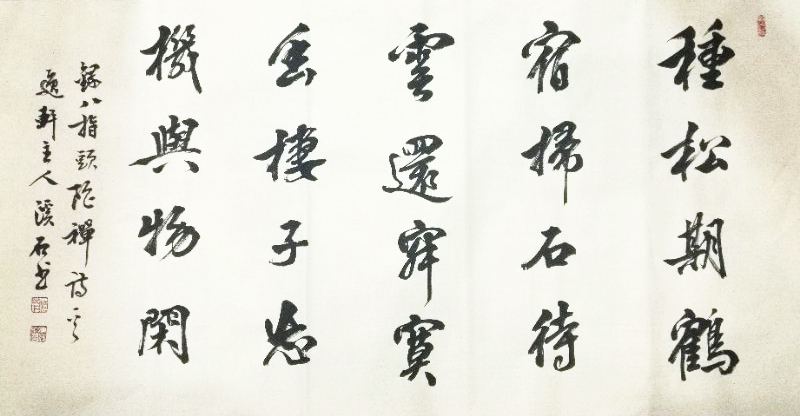 種松期鶴
宿掃石待
雲還寂寞
幽棲子忘
機與物閑
錄八指頭陀禪詩
逸軒主人溪石書